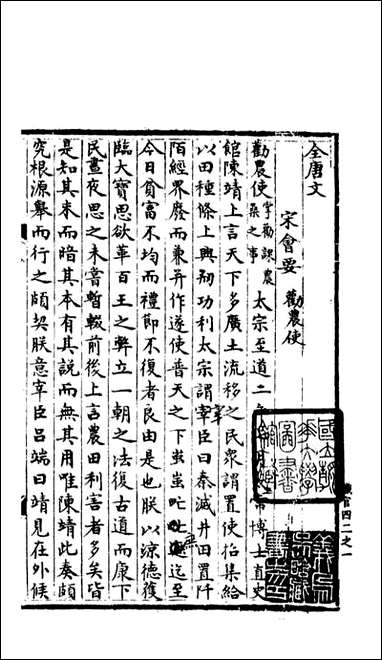 全唐文
宋會要 勸農使
勸農使掌勸課農桑之事 太宗至道二年 常博士直史
館陳靖上言天下多廣土流移之民衆謂置使招集給
以田種條上興剏功利太宗謂宰臣曰秦滅井田置阡
陌經界廢而兼并作遂使普天之下蚩蚩 迄至
今日貧富不均而禮節不復者良由是也朕以涼德獲
臨大寶思欲革百王之弊立一朝之法復古道而康下
民晝夜思之未嘗暫輟前後上言農田利害者多矣皆
是知其末而暗其本有其說而無其用唯陳靖此奏頗
究根源舉而行之頗契朕意宰臣呂端曰靖見在外候
國立
圖書
職官四二之一